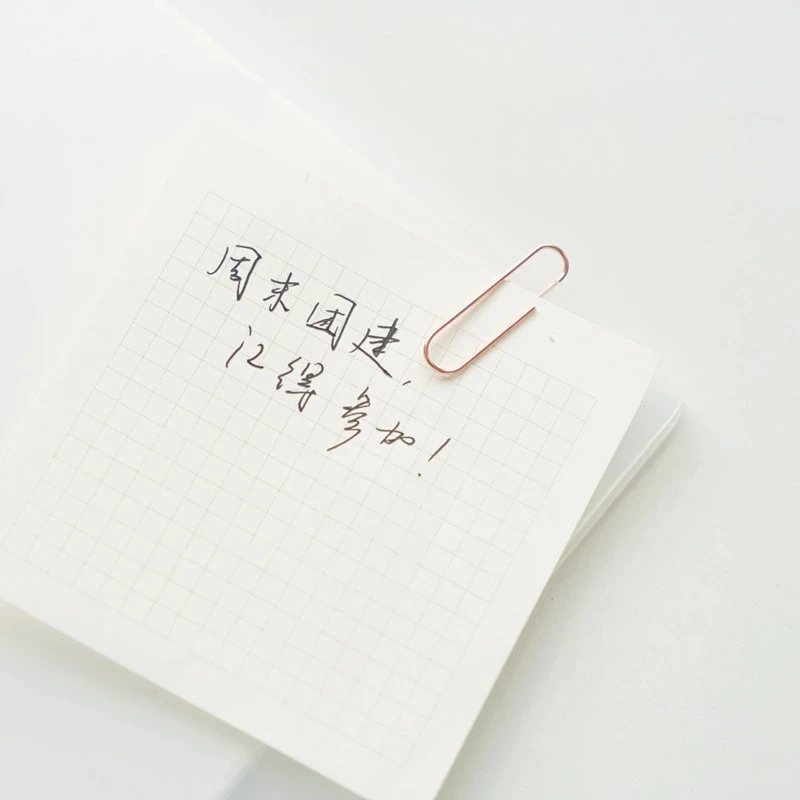 周末团建,
记得参加!